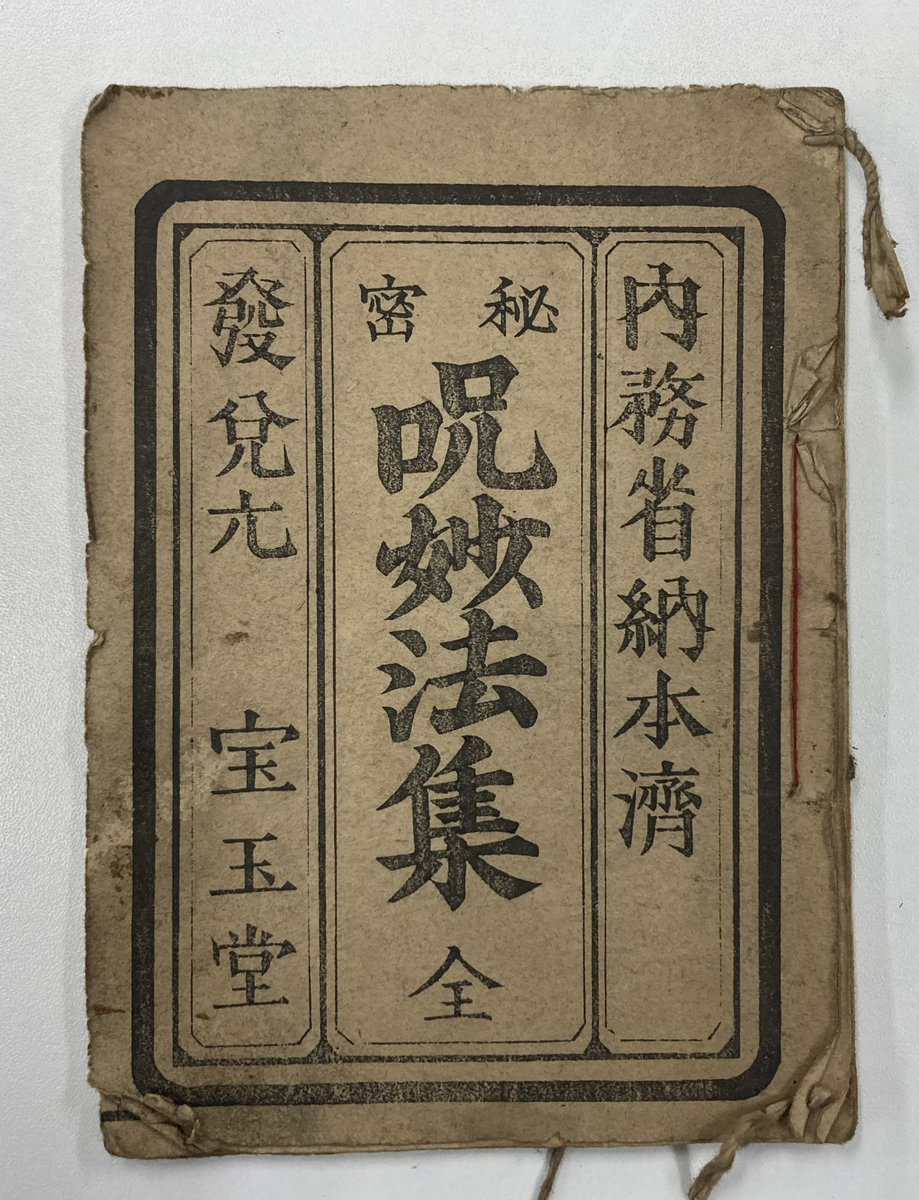 內務省納本濟
秘密
呪妙法集 全
發兌元 宝玉堂